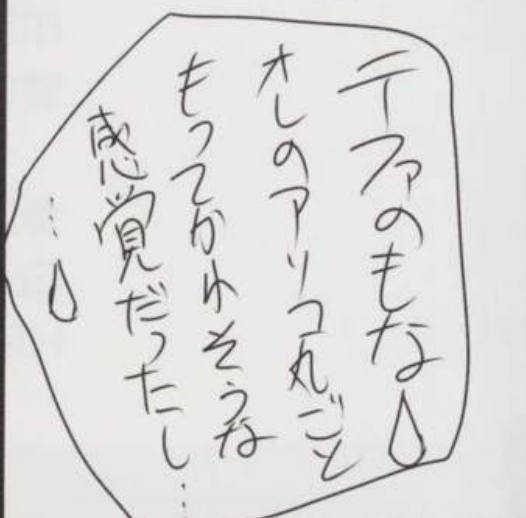 テファのもな
オレのアソコ丸ごと
もってかれそうな
感覚だったし…
…